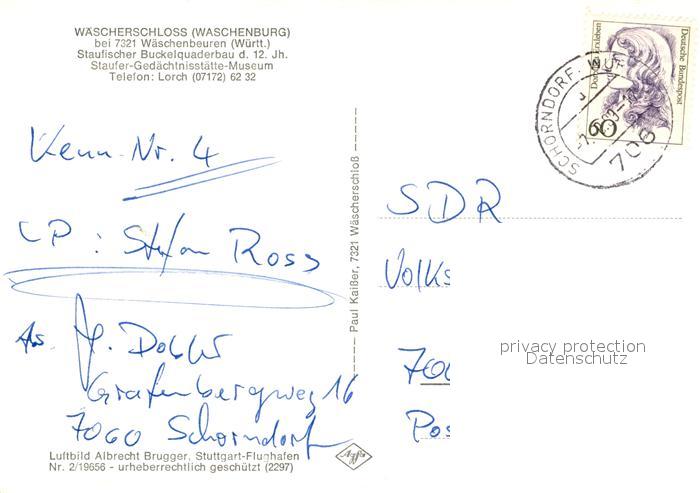 WÄSCHERSCHLOSS (WASCHENBURG)
bei 7321 Wäschenbeuren (Württ.)
Staufischer Buckelquaderbau d. 12. Jh.
Staufer-Gedächtnisstätte-Museum
Telefon: Lorch (07172) 62 32
Kenn-Nr. 4
LP: Stefan Ross
Abs.
Grafenbergweg 16
7060 Schorndorf
Luftbild Albrecht Brugger, Stuttgart-Flughafen
Nr. 2/19656 - urheberrechtlich geschützt (2297)
Agfa
Paul Kaißer, 7321 Wäscherschloß
Deutsche Bundespost
60
SCHORNDORF, WÜRTT
706
SDR
Volks
700
Pos
privacy protection
Datenschutz